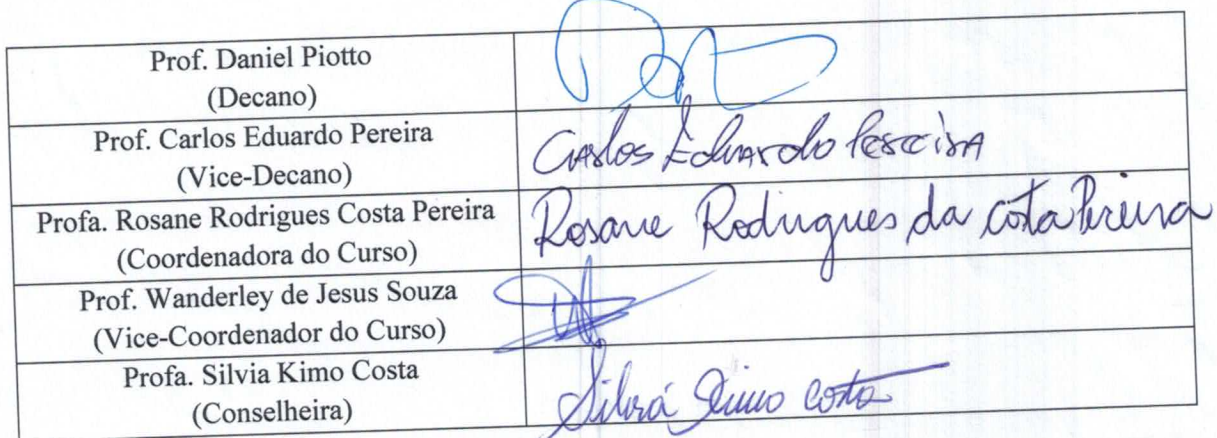 Prof. Daniel Piotto
(Decano)
Prof. Carlos Eduardo Pereira
(Vice-Decano)
Carlos Eduardo Pereira
Profa. Rosane Rodrigues Costa Pereira
(Coordenadora do Curso)
Rosane Rodrigues da Costa Pereira
Prof. Wanderley de Jesus Souza
(Vice-Coordenador do Curso)
Profa. Silvia Kimo Costa
(Conselheira)
Silvia Kimo Costa